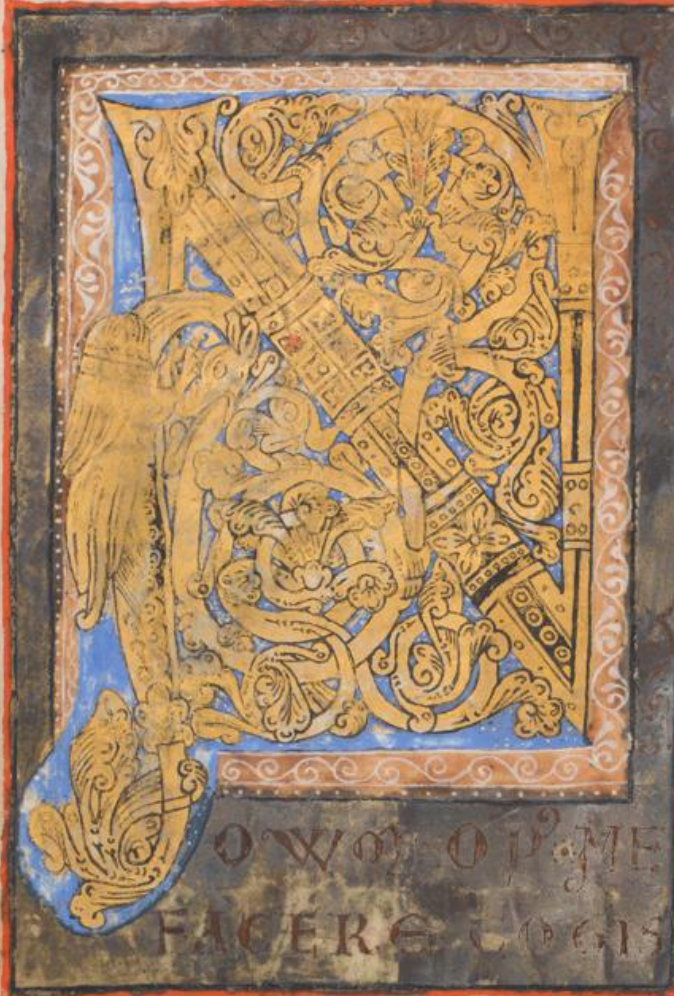 NOVVM OPꝰ ME
FACERE COGIS